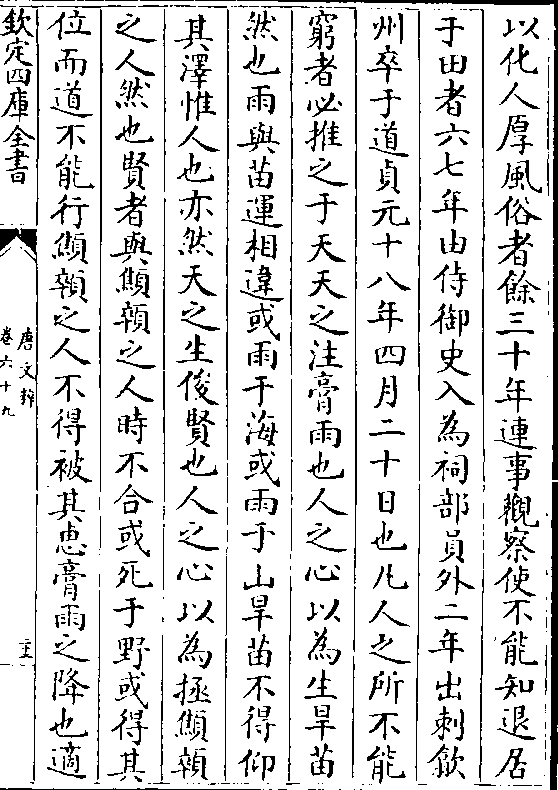 以化人厚風俗者餘三十年連事觀察使不能知退居
于田者六七年由侍御史入為祠部員外二年出刺歙
州卒于道貞元十八年四月二十日也凡人之所不能
窮者必推之于天天之注膏雨也人之心以為生旱苗
然也雨與苗運相違或雨于海或雨于山旱苗不得仰
其澤惟人也亦然天之生俊賢也人之心以為拯顦顇
之人然也賢者與顦顇之人時不合或死于野或得其
位而道不能行顦顇之人不得被其恵膏雨之降也適
欽定四庫全書
唐文粹
卷六十九